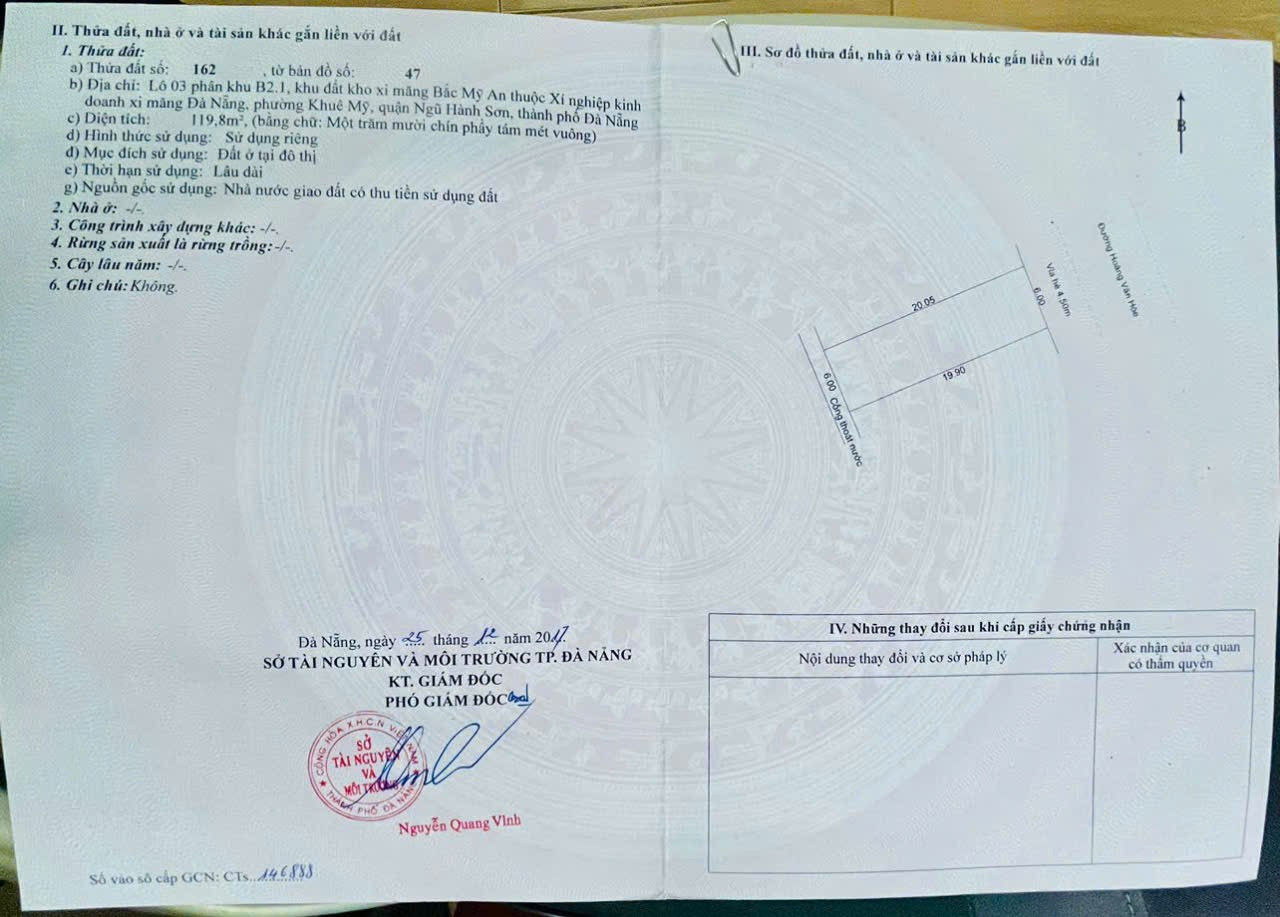 II. Thửa đất, nhà ở và tài sản khác gắn liền với đất
1. Thửa đất:
a) Thửa đất số: 162 , tờ bản đồ số: 47
b) Địa chỉ: Lô 03 phân khu B2.1, khu đất kho xi măng Bắc Mỹ An thuộc Xí nghiệp kinh
doanh xi măng Đà Nẵng, phường Khuê Mỹ, quận Ngũ Hành Sơn, thành phố Đà Nẵng
c) Diện tích: 119,8m², (bằng chữ: Một trăm mười chín phẩy tám mét vuông)
d) Hình thức sử dụng: Sử dụng riêng
đ) Mục đích sử dụng: Đất ở tại đô thị
e) Thời hạn sử dụng: Lâu dài
g) Nguồn gốc sử dụng: Nhà nước giao đất có thu tiền sử dụng đất
2. Nhà ở: -/-.
3. Công trình xây dựng khác: -/-.
4. Rừng sản xuất là rừng trồng: -/-.
5. Cây lâu năm: -/-.
6. Ghi chú: Không.
Đà Nẵng, ngày 25 tháng 12 năm 2017
SỞ TÀI NGUYÊN VÀ MÔI TRƯỜNG TP. ĐÀ NẴNG
KT. GIÁM ĐỐC
PHÓ GIÁM ĐỐC
CỘNG HÒA X.H.C.N VIỆT NAM
SỞ
TÀI NGUYÊN
VÀ
MÔI TRƯỜNG
THÀNH PHỐ ĐÀ NẴNG
Nguyễn Quang Vinh
Số vào sổ cấp GCN: CTs 146888
III. Sơ đồ thửa đất, nhà ở và tài sản khác gắn liền với đất
B
Đường Hoàng Văn Hòe
Vỉa hè 4.50m
6.00
20.05
19.90
6.00
Cống thoát nước
IV. Những thay đổi sau khi cấp giấy chứng nhận
Nội dung thay đổi và cơ sở pháp lý
Xác nhận của cơ quan
có thẩm quyền